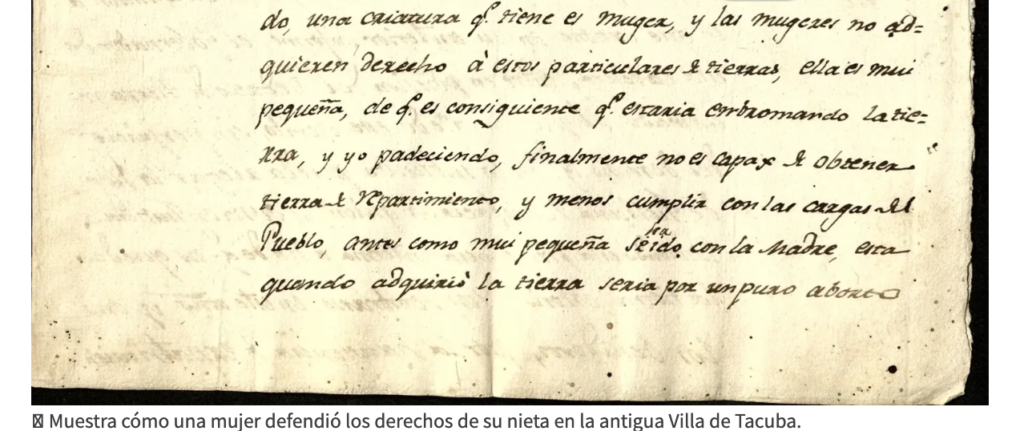 do, una criatura q.e tiene es muger, y las mugeres no ad=
quieren derecho à estos particulares de tierras, ella es mui
pequeña, de q.e es consiguiente q.e estaria embromando la tie=
rra, y yo padeciendo, finalmente no es capax de obtener
tierra de repartimiento, y menos cumplir con las cargas del
Pueblo, antes como mui pequeña se con la Madre, esta
quando adquiriò la tierra seria por un puro aborto
Muestra cómo una mujer defendió los derechos de su nieta en la antigua Villa de Tacuba.